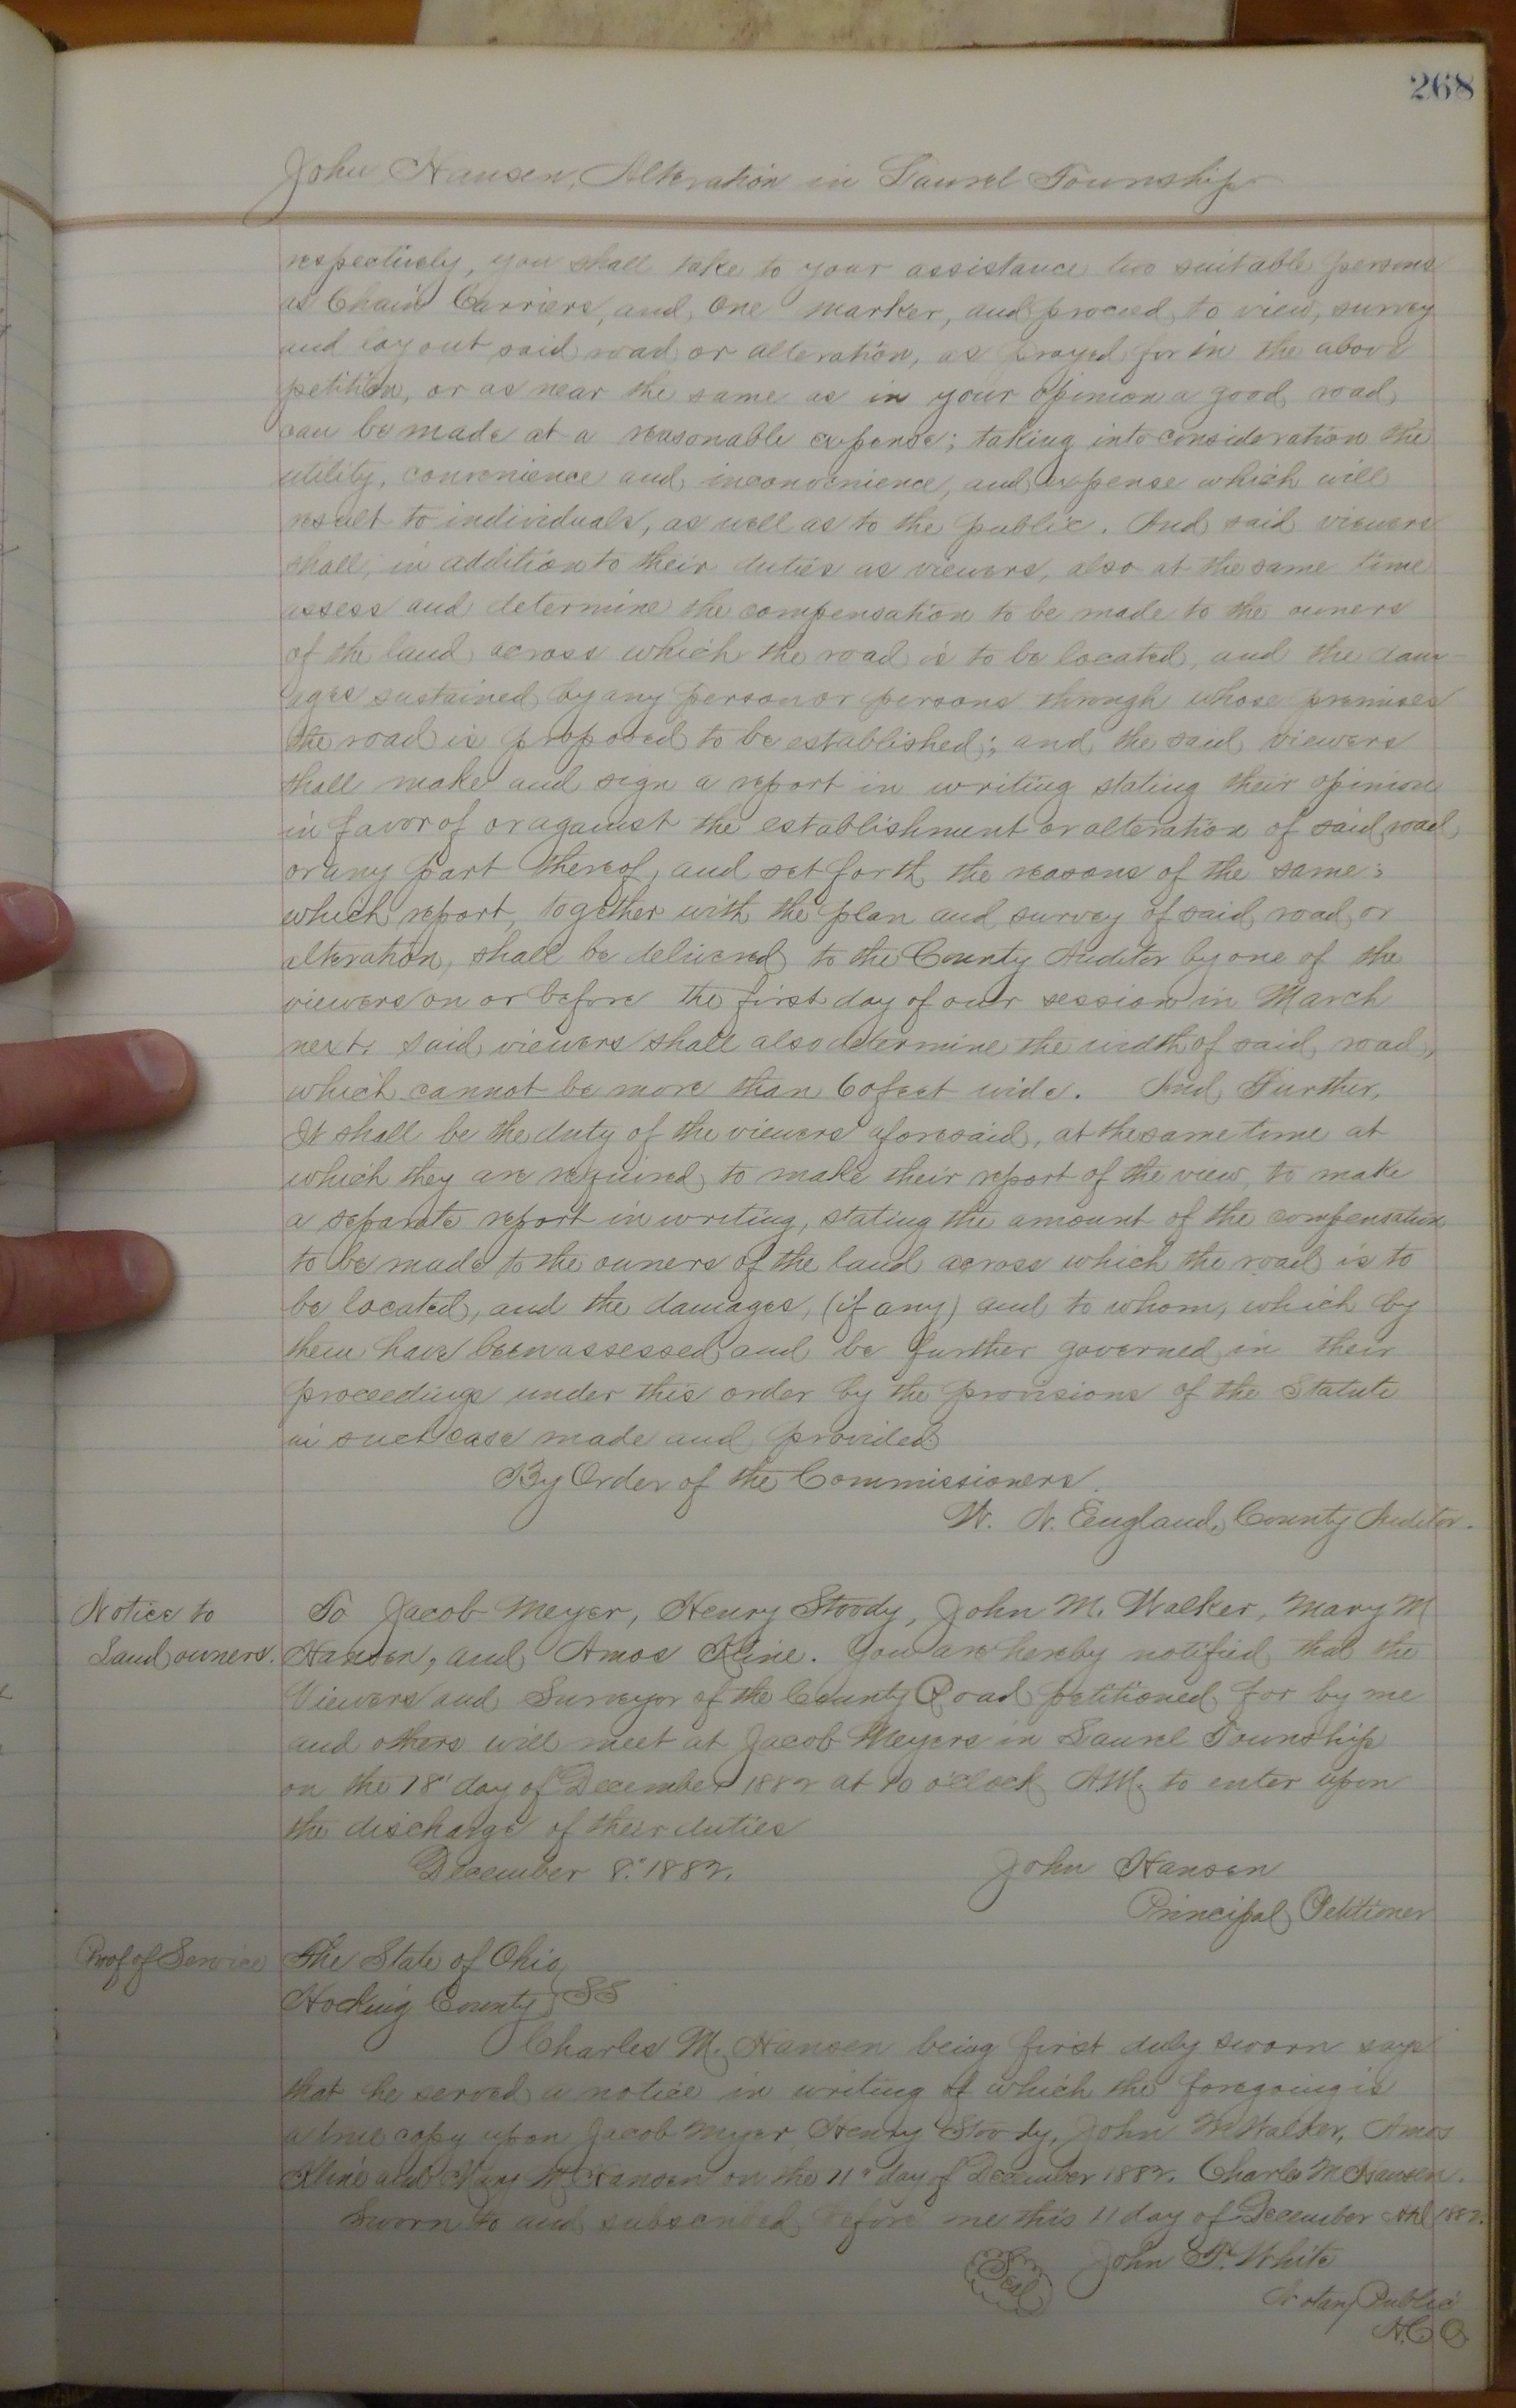 268
John Hansen, Alteration in Laurel Township
respectively, you shall take to your assistance two suitable persons
as Chain Carriers, and one marker, and proceed to view, survey
and lay out said road or alteration, as prayed for in the above
petition, or as near the same as in your opinion a good road
can be made at a reasonable expense; taking into consideration the
utility, convenience and inconvenience, and expense which will
result to individuals, as well as to the public. And said viewers
shall, in addition to their duties as viewers, also at the same time
assess and determine the compensation to be made to the owners
of the land across which the road is to be located, and the dam-
ages sustained by any person or persons through whose premises
the road is proposed to be established; and the said viewers
shall make and sign a report in writing stating their opinion
in favor of or against the establishment or alteration of said road
or any part thereof, and set forth the reasons of the same:
which report, together with the plan and survey of said road or
alteration, shall be delivered to the County Auditor by one of the
viewers on or before the first day of our session in March
next. Said viewers shall also determine the width of said road,
which cannot be more than 60 feet wide. And Further,
It shall be the duty of the viewers aforesaid, at the same time at
which they are required to make their report of the view, to make
a separate report in writing, stating the amount of the compensation
to be made to the owners of the land across which the road is to
be located, and the damages, (if any) and to whom, which by
them have been assessed and be further governed in their
proceedings under this order by the provisions of the Statute
in such case made and provided.
By Order of the Commissioners.
W. N. England, County Auditor.
Notice to
Land owners.
To Jacob Meyer, Henry Stoody, John M. Walker, Mary M
Hansen, and Amos Kline. You are hereby notified that the
Viewers and Surveyor of the County Road petitioned for by me
and others will meet at Jacob Meyers in Laurel Township
on the 18" day of December 1882 at 10 o'clock A.M. to enter upon
the discharge of their duties
December 8." 1882.
John Hansen
Principal Petitioner
Proof of Service
The State of Ohio
Hocking County SS
Charles M. Hansen being first duly sworn says
that he served a notice in writing of which the foregoing is
a true copy upon Jacob Myer, Henry Stoody, John M Walker, Amos
Kline and Mary M Hansen on the 11" day of December 1882. Charles M Hansen.
Sworn to and subscribed before me this 11 day of December AD 1882.
Seal
John T. White
Notary Public
H.C.O.